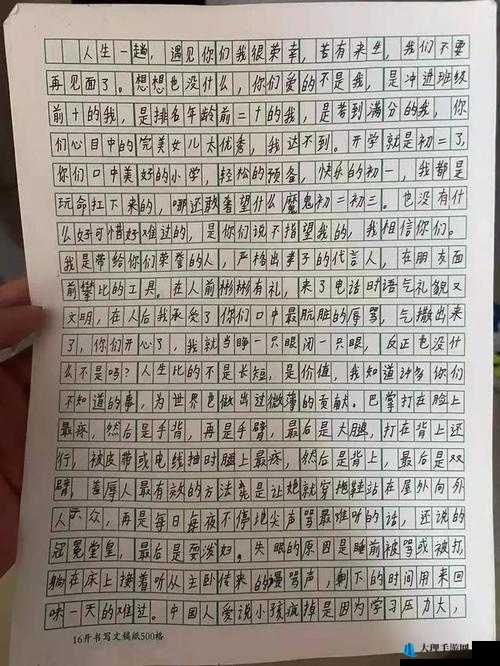 人生一趟，遇见你们我很荣幸，若有来生，我们不要
再见面了。想想也没什么，你们爱的不是我，是冲进班级
前十的我，是排名年龄前二十的我，是若到满分的我，你
们心目中的完美女儿太优秀，我达不到。开学就是初二了，
你们口中美好的小学，轻松的预备，快乐的初一，我都是
玩命扛下来的，哪还敢奢望什么魔鬼初二初三。也没有什
么好可惜好难过的，是你们说不指望我的，我相信你们。
我是带给你们荣誉的人，严格出孝子的代言人，在朋友面
前攀比的工具。在人前彬彬有礼，来了电话时语气礼貌又
文明，在人后我承受了你们口中最肮脏的辱骂，气撒出来
了，你们开心了，我就当睁一只眼闭一只眼，反正也没什
么不是吗？人生比的不是长短，是价值，我知道许多你们
不知道的事，为世界也做出过微薄的贡献。巴掌打在脸上
最疼，然后是手背，再是手臂，最后是大腿，打在背上还
行，被皮带或电线抽时腿上最疼，然后是背上，最后是双
臂，羞辱人最有效的方法是让她就穿拖鞋站在屋外向外
人示众，再是每日每夜不停地尖声骂最难听的话，还说的
冠冕堂皇，最后是耍泼好。失眠的原因是睡前被骂或被打，
躺在床上接着听从主卧传来的谩骂声，剩下的时间用来回
味一天的难过。中国人爱说小孩疯掉是因为学习压力大，
16开书写文稿纸500格
大理手游网